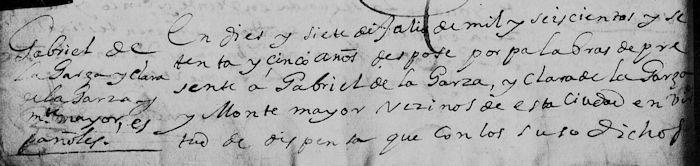 Gabriel de
la Garza y Clara
de la Garza y
mte mayor, es
pañoles.
En dies y siete de Julio de mil y seiscientos y se
tenta y cinco años despose por pa labras de pre
sente à Gabriel de la Garza, y Clara de la Garza
y Monte mayor Vezinos de esta Ciudad en Vir
tud de dispenta que con los suso dichos